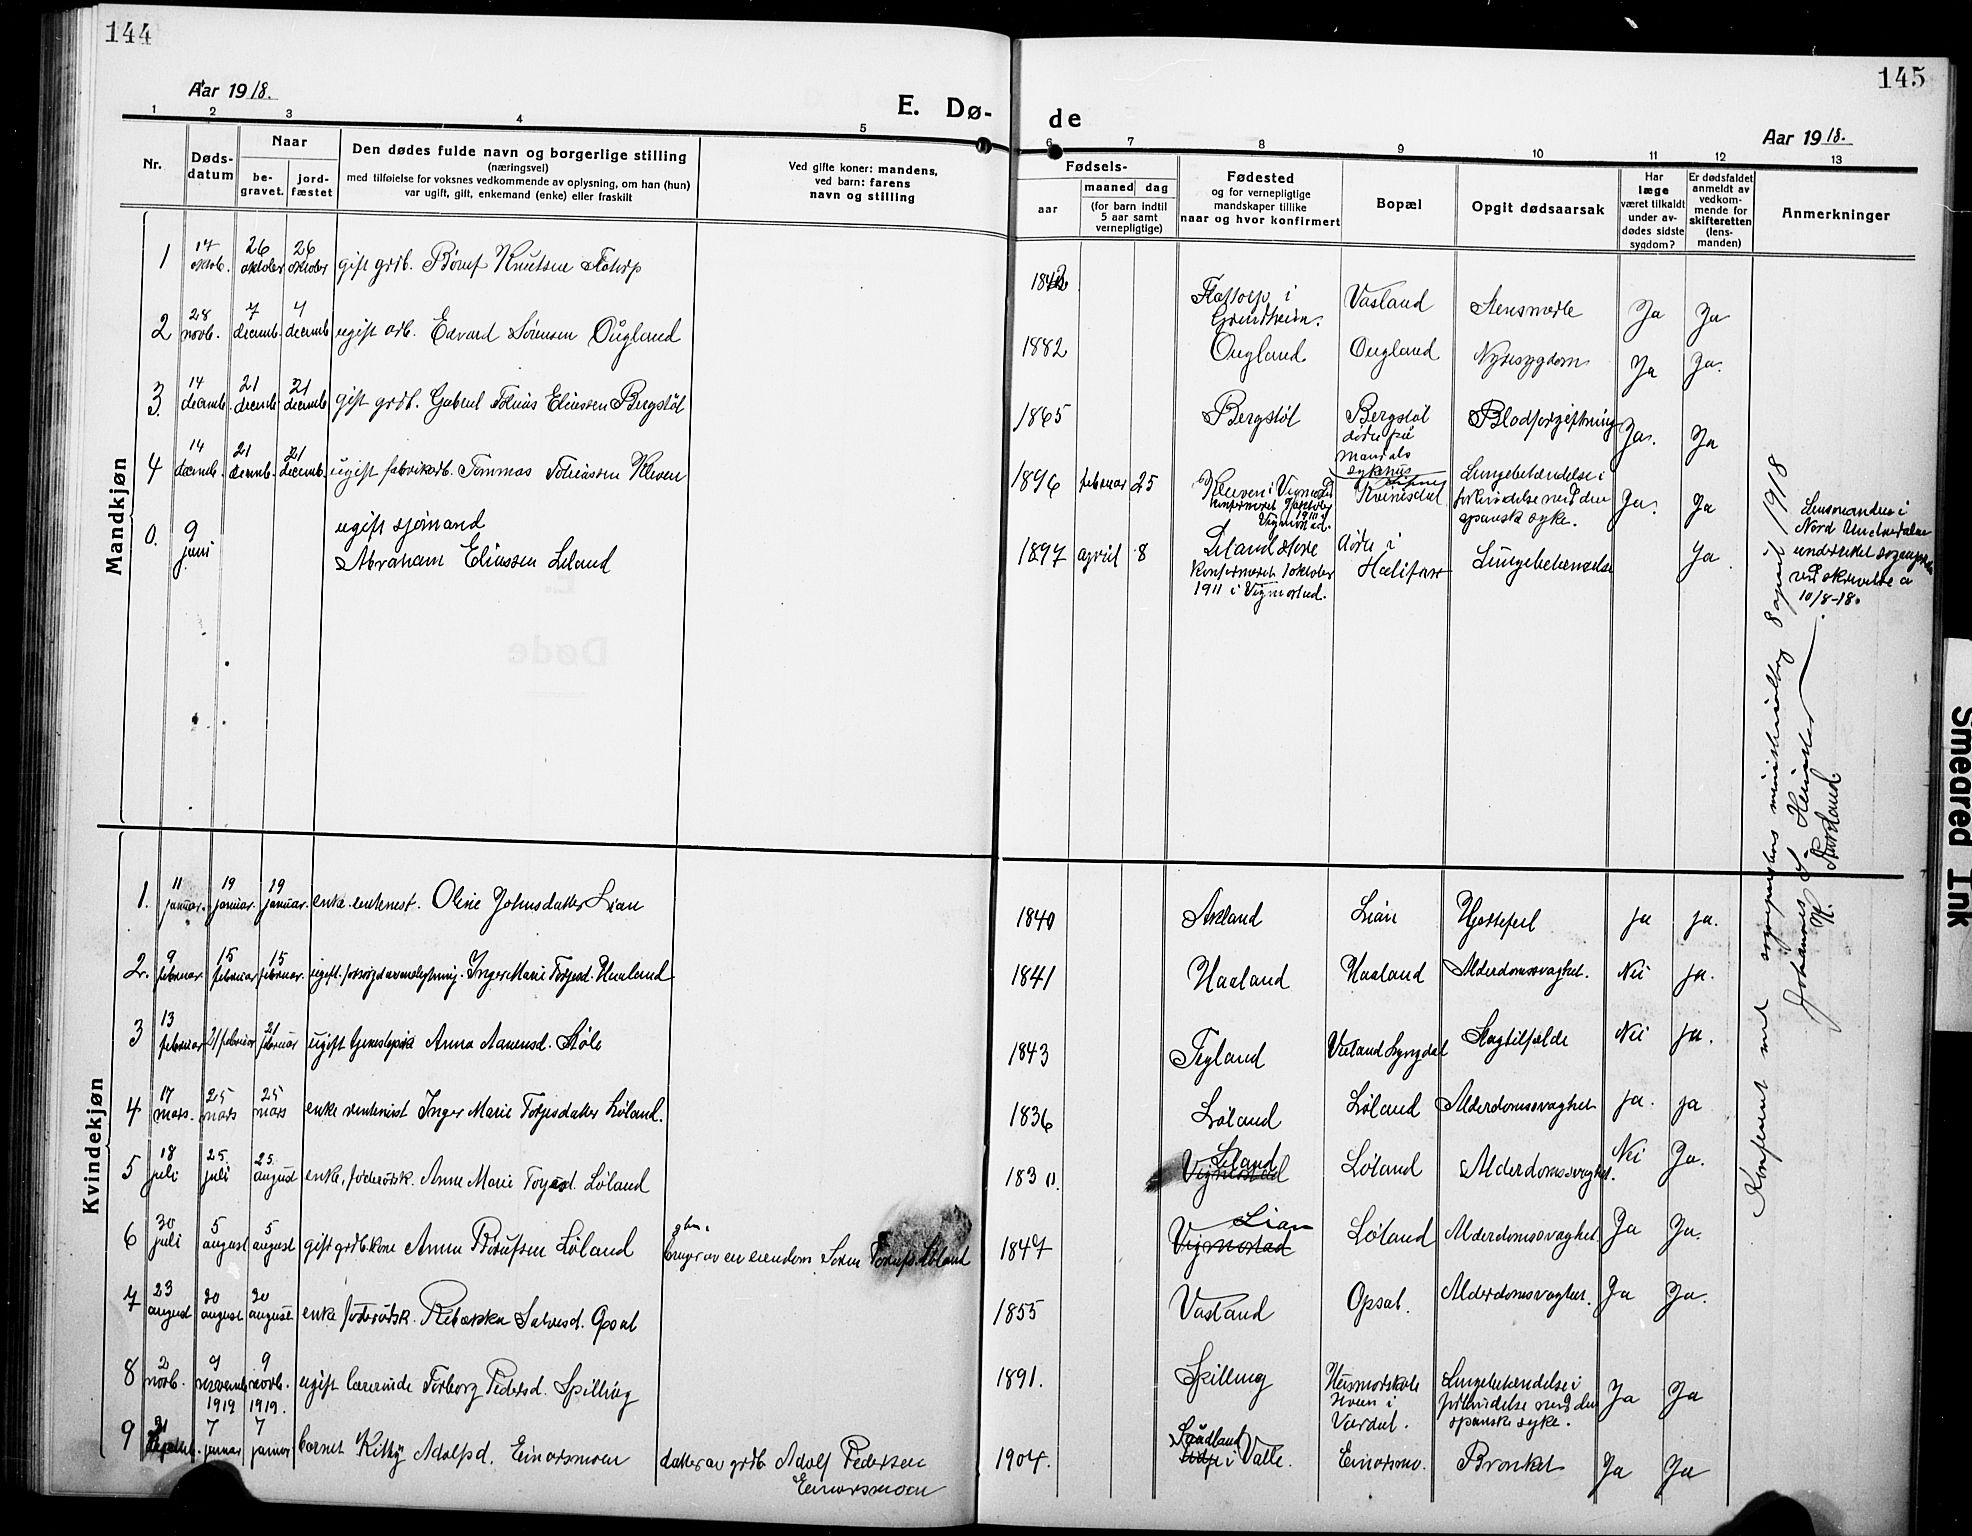 144
Aar 1918.
E. Dø-
1 2 3 4 5
Nr.
Døds-
datum
Naar
be-
gravet.
jord-
fæstet
Den dødes fulde navn og borgerlige stilling
(næringsvei)
med tilføielse for voksnes vedkommende av oplysning, om han (hun)
var ugift, gift, enkemand (enke) eller fraskilt
Ved gifte koner: mandens,
ved barn: farens
navn og stilling
Mandkjøn
1 17 oktob. 26 oktober 26 oktober gift grdb. Knutsen
2 28 novb. 7 decemb. 7 decemb. ugift arb. Edvard Sørensen Øugland
3. 14 decemb. 21 decemb. 21 decemb. gift grdb. Gabriel Tobias Eliassen Bergstøl
4 14 decemb. 21 decemb. 21 decemb. ugift fabrikarb. Tommas Tobiassen Kleven
0. 9 juni ugift sjømand
Abraham Eliassen Leland
Døde
Kvindekjøn
1. 11 januar. 19 januar. 19 januar. enke. rentenist. Oline Johnsdatter Lian
2. 9 februar. 15 februar 15 februar. ugift. Inger Marie Torjesd. Haaland
3 13 februar 21 februar 21 februar ugift Anna Aanensd. Støle
4 17 mars. 25 mars 25 mars enke rentenist Inger Marie Torjesdatter Løland.
5 18 juli 25. juli 25 august enke, føderådsk. Anne Marie Torjesd. Løland
6 30 juli 5 august 5 august gift grdb. kone Anne Løland
bruger av en eiendom Søren Løland
7 23 august 30 august 30 august enke føderådsk. Salvesd. Opsal
8 2 novb. 9 novemb. 9 novb. ugift lærerinde Torborg Pedersd. Spilling
1919 1919.
9 7 januar 7 januar barnet Kitty Adolfsd. Einarsmoen datter av grdb. Adolf Pedersen
Einarsmoen
145
de
Aar 1918.
6 7 8 9 10 11 12 13
Fødsels-
aar
maaned dag
(for barn indtil
5 aar samt
vernepligtige)
Fødested
og for vernepligtige
mandskaper tillike
naar og hvor konfirmert
Bopæl
Opgit dødsaarsak
Har
læge
været tilkaldt
under av-
dødes sidste
sygdom?
Er dødsfaldet
anmeldt av
vedkom-
mende for
skifteretten
(lens-
manden)
Anmerkninger
1842 Flottorp i
Grindheim. Vasland Ja Ja
1882 Øugland Øugland Nyresygdom Ja Ja.
1865 Bergstøl Bergstøl
døde på
Mandals
sykehus Blodforgiftning Ja. Ja
1896 februar 25 Kleven i Vigmostad
1911 i
Vigmostad. Kvinesdal Lungebetændelse i
forbindelse med den
spanske syke. Ja. Ja
1897 april 8 Leland store
konfirmeret 1 oktober
1911 i Vigmostad. døde i
Halifax Lungebetændelse Ja
Lensmanden i
Nord Undredalen
ved skrivelse av
10/8-18.
1840 Askland Lian Hjertefeil ja ja.
1841 Haaland Haaland Alderdomssvaghet. Nei ja.
1843 Tegland Vieland Lyngdal Slagtilfælde Nei ja.
1836 Løland Løland Alderdomssvaghet ja. ja
1830. Leland
Vigmostad Løland Alderdomssvaghet. Nei Ja.
1847 Lian
Vigmostad Løland Alderdomssvaghet Ja Ja.
1855 Vasland Opsal. Alderdomssvaghet. Ja Ja.
1891. Spilling Husmorskole
i
Værdal. Lungebetændelse i
forbindelse med den
spanske syke. Ja Ja
1904. i Valle. Einarsmo. Bronkit Ja Ja
Konferert med sogneprestens ministerialbog 8 april 1918
Johannes
Smeared Ink